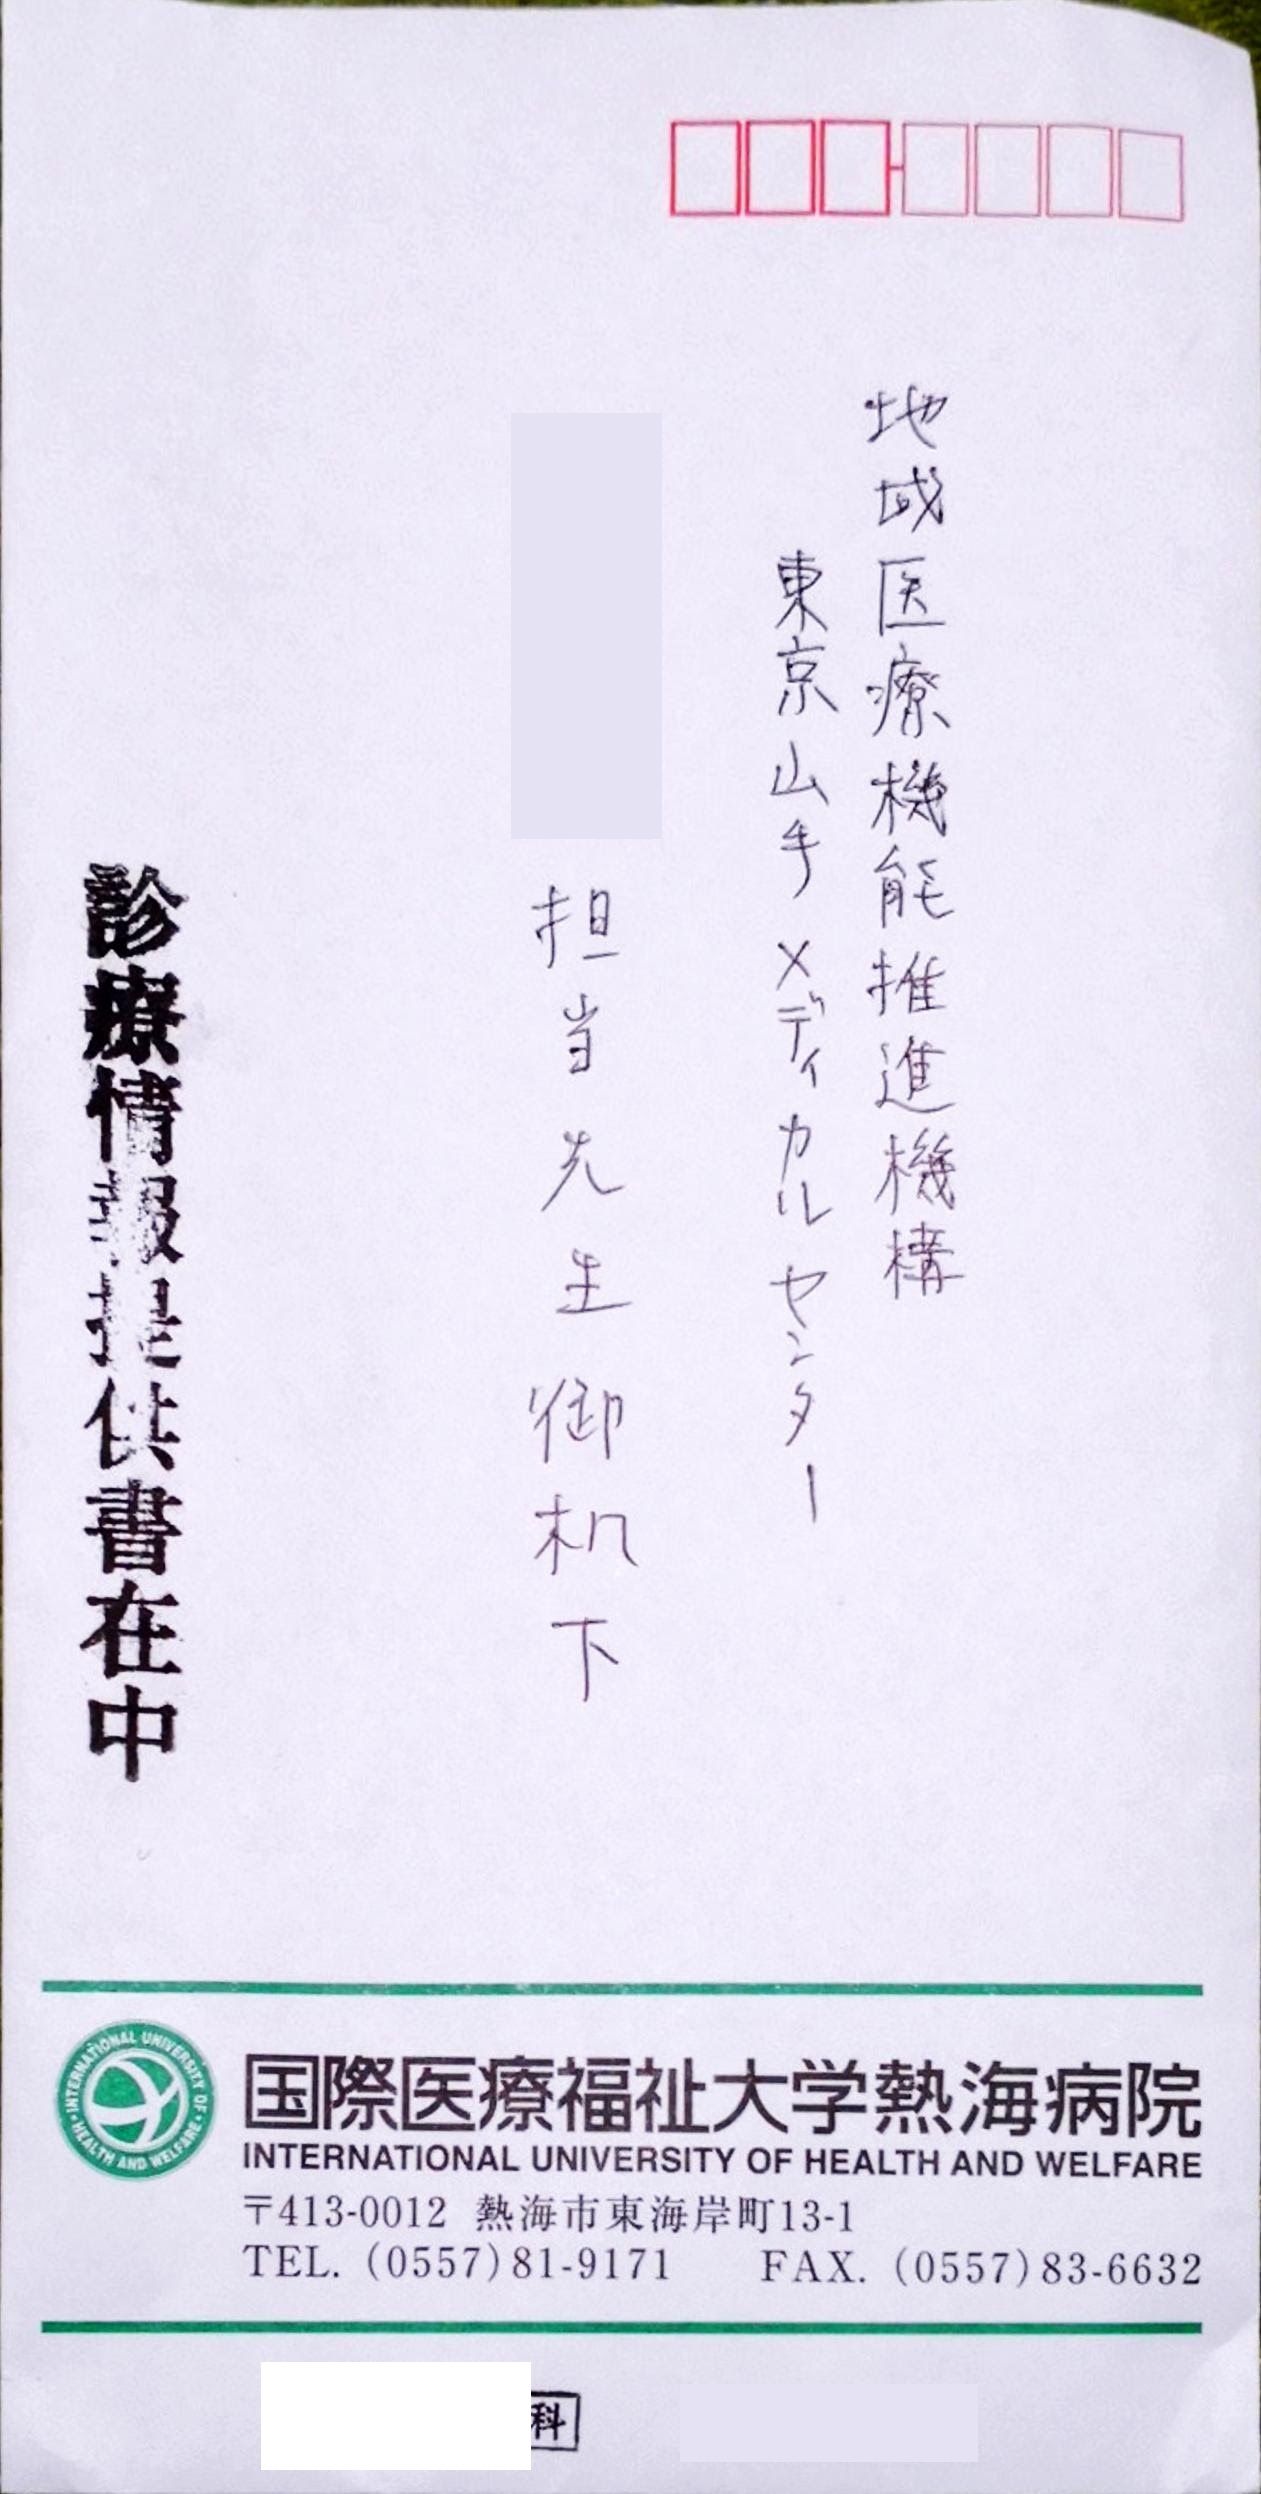 地域医療機能推進機構
東京山手メディカルセンター
担当先生御机下
診療情報提供書在中
INTERNATIONAL UNIVERSITY OF HEALTH AND WELFARE
国際医療福祉大学熱海病院
INTERNATIONAL UNIVERSITY OF HEALTH AND WELFARE
〒413-0012 熱海市東海岸町13-1
TEL. (0557)81-9171 FAX. (0557)83-6632
科